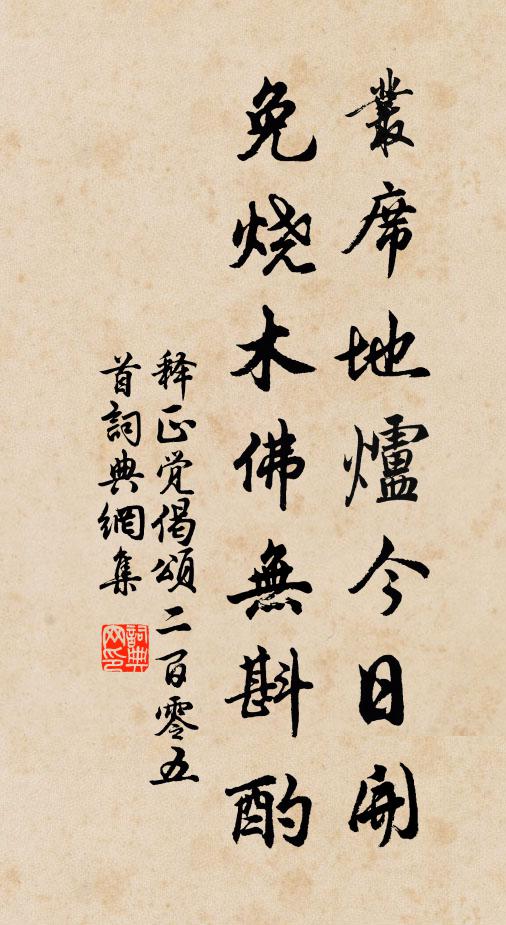 叢席地爐今日開
免烧木佛無斟酌
释正觉偈頌二百零五
首詞典網集
詞典网印